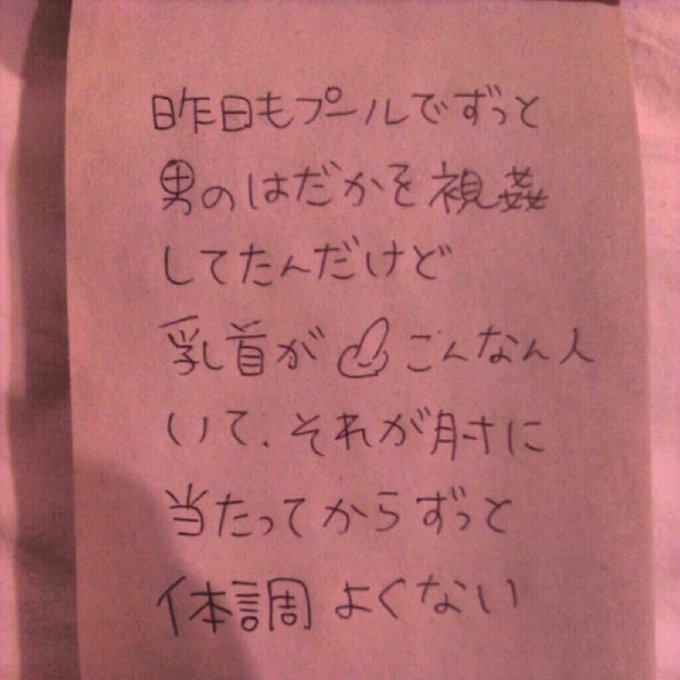 昨日もプールでずっと
男のはだかを視姦
してたんだけど
乳首が こんなん人
いて、それが肘に
当たってからずっと
体調よくない